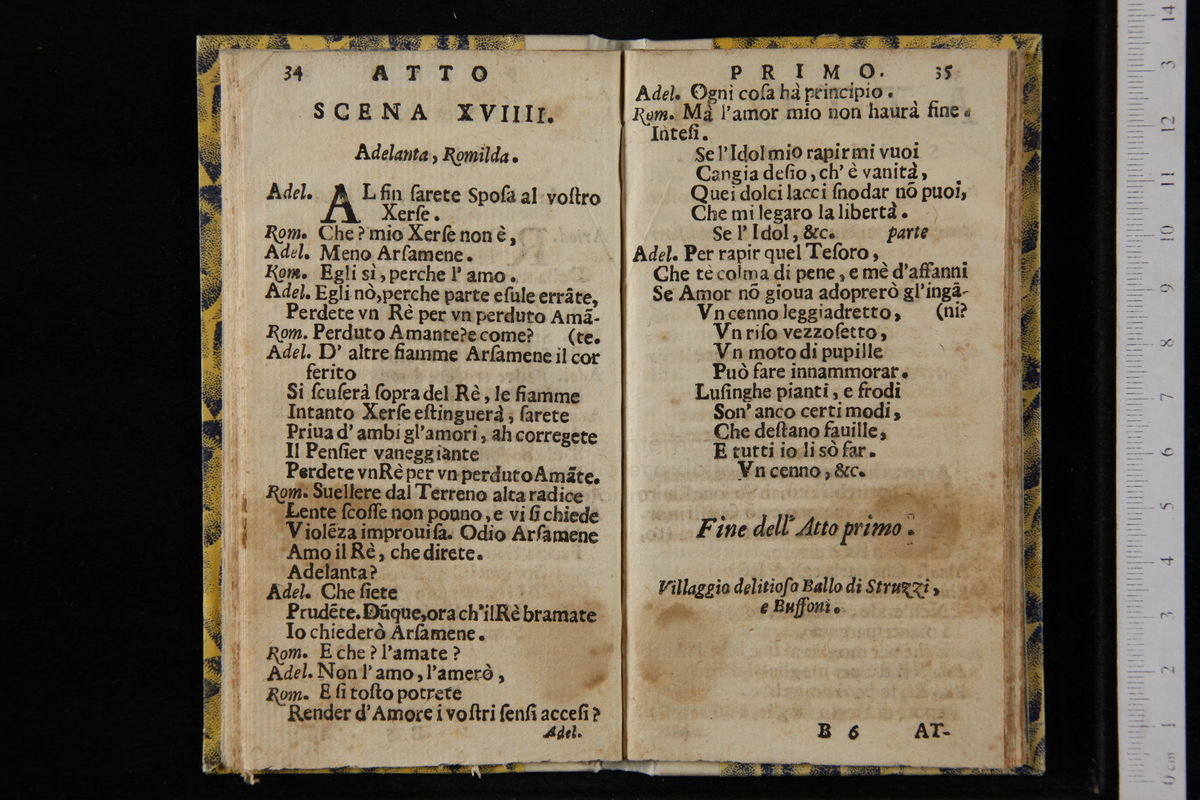 34 ATTO
SCENA XVIIII.
Adelanta, Romilda.
Adel. AL fin ſarete Spoſa al voſtro
Xerſe.
Rom. Che? mio Xerſe non è,
Adel. Meno Arſamene.
Rom. Egli sì, perche l' amo.
Adel. Egli nò, perche parte eſule errãte,
Perdete vn Rè per vn perduto Amã-
Rom. Perduto Amante? e come? (te.
Adel. D' altre fiamme Arſamene il cor
ferito
Si ſcuſerà ſopra del Rè, le fiamme
Intanto Xerſe eſtinguerà, ſarete
Priua d' ambi gl'amori, ah corregete
Il Penſier vaneggiante
Perdete vn Rè per vn perduto Amãte.
Rom. Suellere dal Terreno alta radice
Lente ſcoſſe non ponno, e vi ſi chiede
Violẽza improuiſa. Odio Arſamene
Amo il Rè, che direte.
Adelanta?
Adel. Che ſiete
Prudẽte. Dũque, ora ch' il Rè bramate
Io chiederò Arſamene.
Rom. E che? l'amate?
Adel. Non l' amo, l'amerò,
Rom. E ſi toſto potrete
Render d'Amore i voſtri ſenſi acceſi?
Adel.
PRIMO. 35
Adel. Ogni coſa hà principio.
Rom. Mà l'amor mio non haurà fine.
Inteſi.
Se l'Idol mio rapirmi vuoi
Cangia deſio, ch' è vanità,
Quei dolci lacci ſnodar nõ puoi,
Che mi legaro la libertà.
Se l' Idol, &c. parte
Adel. Per rapir quel Teſoro,
Che tè colma di pene, e mè d'affanni
Se Amor nõ gioua adoprerò gl'ingã-
Vn cenno leggiadretto, (ni?
Vn riſo vezzoſetto,
Vn moto di pupille
Può fare innammorar.
Luſinghe pianti, e frodi
Son' anco certi modi,
Che deſtano fauille,
E tutti io li sò far.
Vn cenno, &c.
Fine dell' Atto primo.
Villaggio delitioſo Ballo di Struzzi,
e Buffoni.
B 6 AT-
14
13
12
11
10
9
8
7
6
5
4
3
2
1
0 cm